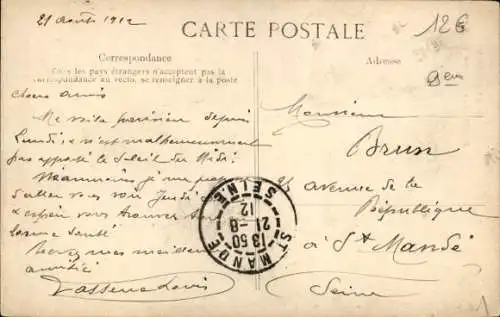 21 août 1912
CARTE POSTALE
12€
Correspondance
Tous les pays étrangers n'acceptent pas la
correspondance au verso, se renseigner à la poste
Adresse
Chers amis
Me voilà parisien depuis
Lundi, je n'ai malheureusement
pas apporté le Soleil du Midi
Néanmoins je me
d'aller vous voir Jeudi
espoir vous trouver
bonne Santé
mes meilleures
amitiés
Louis
Monsieur
Brun
25 avenue de la
République
à St Mandé
Seine
ST MANDÉ
SEINE
13 50
21 - 8
12
1